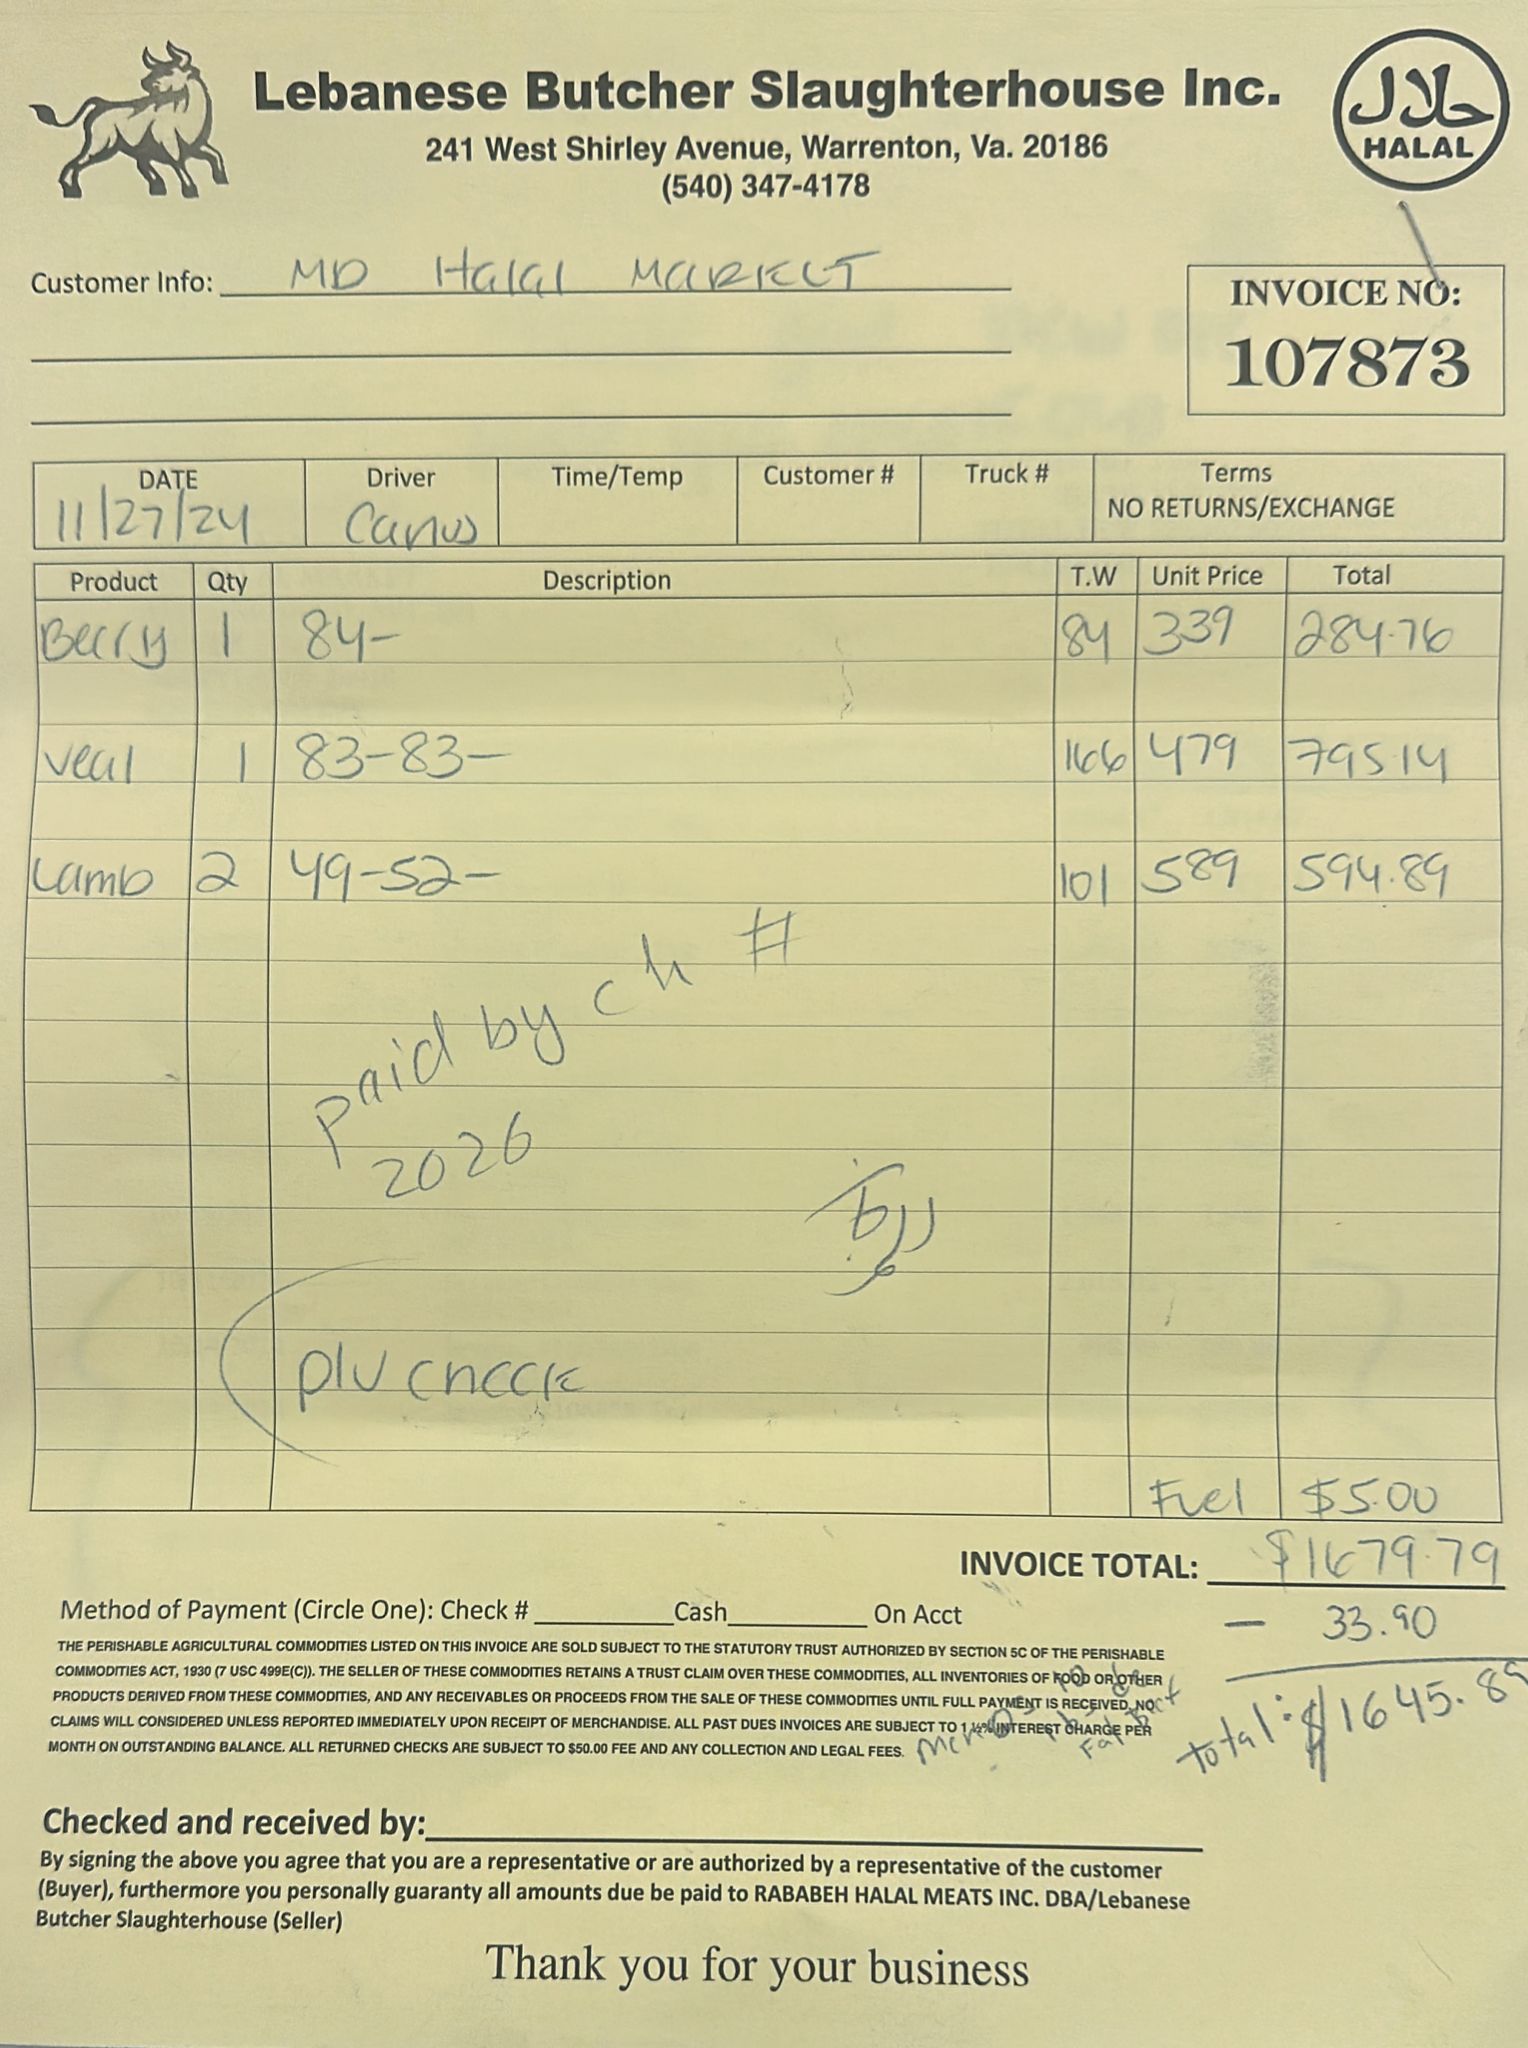 Lebanese Butcher Slaughterhouse Inc.
241 West Shirley Avenue, Warrenton, Va. 20186
(540) 347-4178
حلال
HALAL
Customer Info: MD Halal Market
INVOICE NO:
107873
DATE Driver Time/Temp Customer # Truck # Terms
11/27/24 NO RETURNS/EXCHANGE
Product Qty Description T.W Unit Price Total
Berry 1 84- 84 339 284.76
Veal 1 83-83- 166 479 795.14
Lamb 2 49-52- 101 589 594.89
paid by ch #
2026
P/U check
Fuel $5.00
INVOICE TOTAL: $1679.79
- 33.90
Total: $1645.89
Method of Payment (Circle One): Check # Cash On Acct
THE PERISHABLE AGRICULTURAL COMMODITIES LISTED ON THIS INVOICE ARE SOLD SUBJECT TO THE STATUTORY TRUST AUTHORIZED BY SECTION 5C OF THE PERISHABLE
COMMODITIES ACT, 1930 (7 USC 499E(C)). THE SELLER OF THESE COMMODITIES RETAINS A TRUST CLAIM OVER THESE COMMODITIES, ALL INVENTORIES OF FOOD OR OTHER
PRODUCTS DERIVED FROM THESE COMMODITIES, AND ANY RECEIVABLES OR PROCEEDS FROM THE SALE OF THESE COMMODITIES UNTIL FULL PAYMENT IS RECEIVED, NO
CLAIMS WILL CONSIDERED UNLESS REPORTED IMMEDIATELY UPON RECEIPT OF MERCHANDISE. ALL PAST DUES INVOICES ARE SUBJECT TO 1 ½% INTEREST CHARGE PER
MONTH ON OUTSTANDING BALANCE. ALL RETURNED CHECKS ARE SUBJECT TO $50.00 FEE AND ANY COLLECTION AND LEGAL FEES.
Checked and received by:
By signing the above you agree that you are a representative or are authorized by a representative of the customer
(Buyer), furthermore you personally guaranty all amounts due be paid to RABABEH HALAL MEATS INC. DBA/Lebanese
Butcher Slaughterhouse (Seller)
Thank you for your business